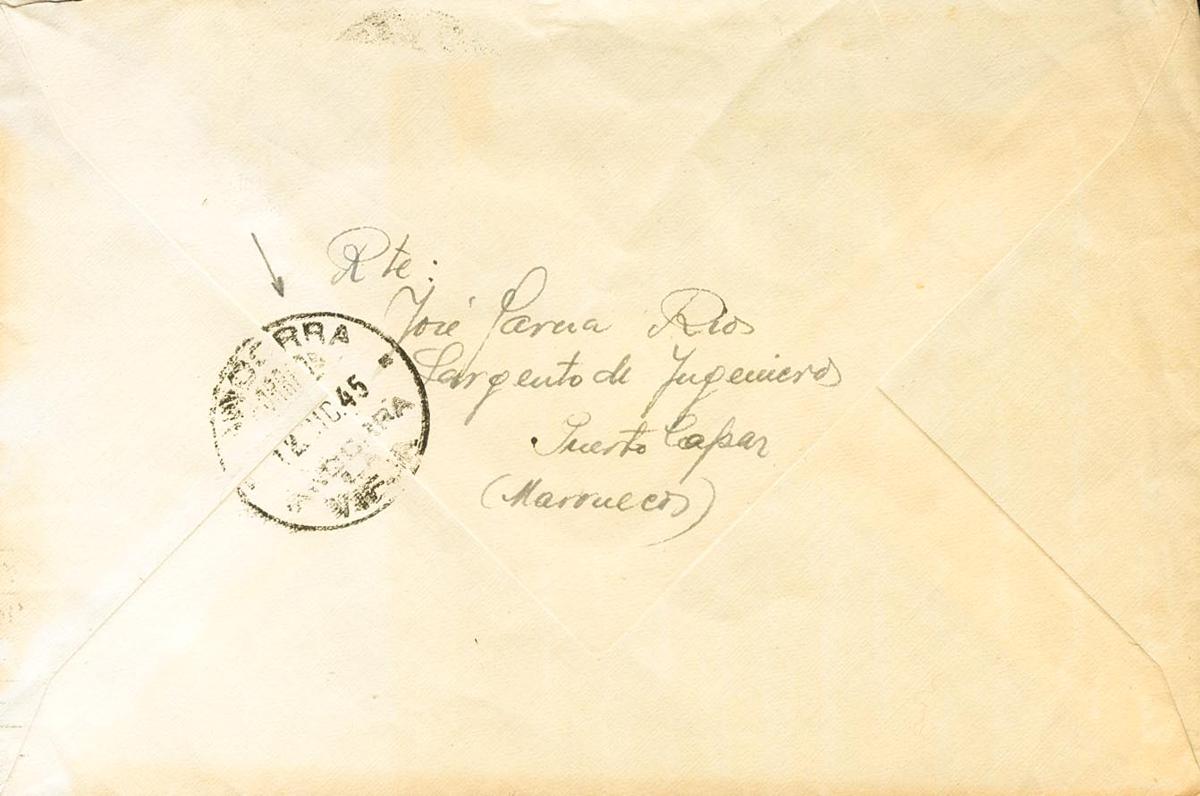 Rte:
José Garcia Rios
Sargento de Ingenieros
Puerto Capaz
(Marruecos)
ANDORRA
12 DIC.45
ANDORRA
LA
VIEJA